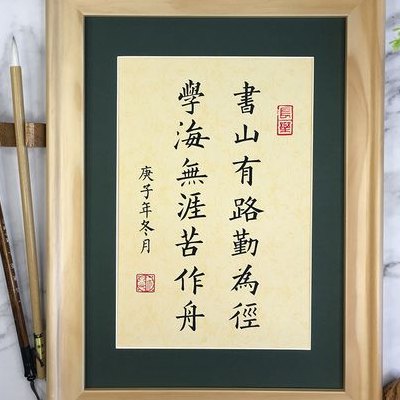 書山有路勤為徑
學海無涯苦作舟
庚子年冬月